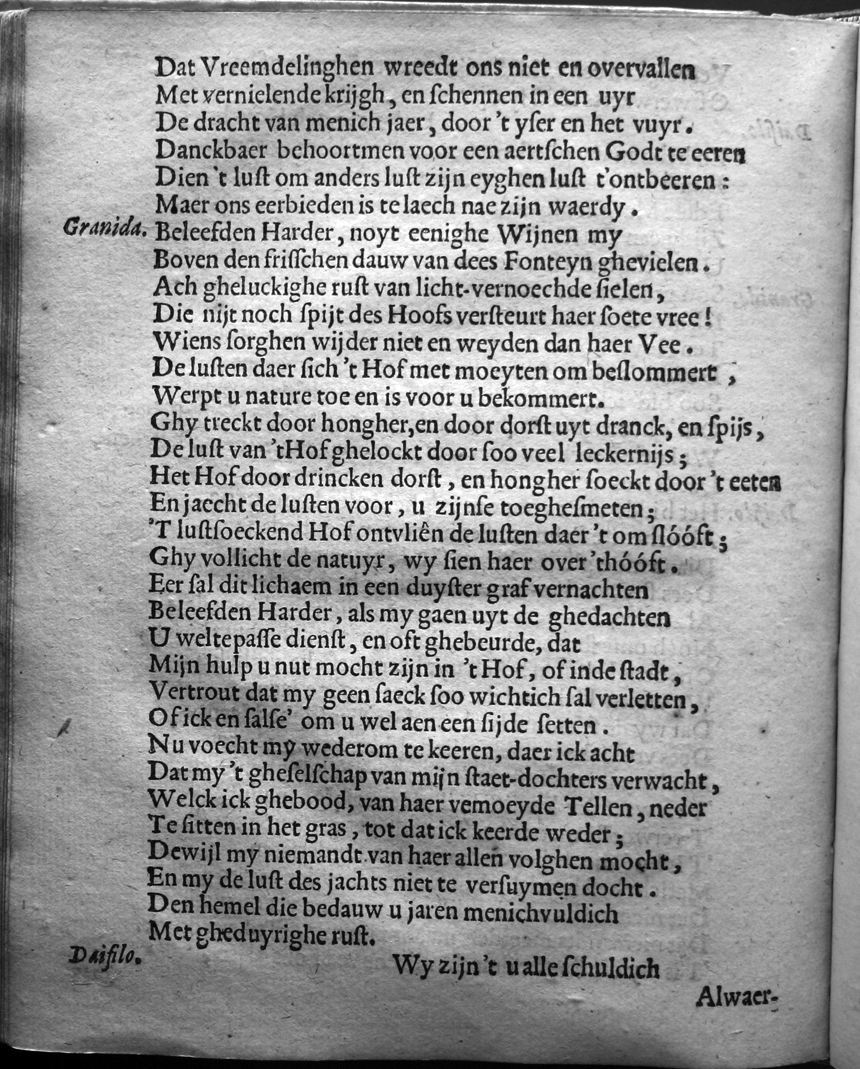 Dat Vreemdelinghen wreedt ons niet en overvallen
Met vernielende krijgh, en ſchennen in een uyr
De dracht van menich jaer, door 't yſer en het vuyr.
Danckbaer behoortmen voor een aertſchen Godt te eeren
Dien 't luſt om anders luſt zijn eyghen luſt t'ontbeeren:
Maer ons eerbieden is te laech nae zijn waerdy.
Granida. Beleefden Harder, noyt eenighe Wijnen my
Boven den friſſchen dauw van dees Fonteyn ghevielen.
Ach gheluckighe ruſt van licht-vernoechde ſielen,
Die nijt noch ſpijt des Hoofs verſteurt haer ſoete vree!
Wiens ſorghen wijder niet en weyden dan haer Vee.
De luſten daer ſich 't Hof met moeyten om beſlommert,
Werpt u nature toe en is voor u bekommert.
Ghy treckt door hongher, en door dorſt uyt dranck, en ſpijs,
De luſt van 't Hof ghelockt door ſoo veel leckernijs;
Het Hof door drincken dorſt, en hongher ſoeckt door 't eeten
En jaecht de luſten voor, u zijnſe toegheſmeten;
'T luſtſoeckend Hof ontvliên de luſten daer 't om ſlóóft;
Ghy vollicht de natuyr, wy ſien haer over 'thóóft.
Eer ſal dit lichaem in een duyſter graf vernachten
Beleefden Harder, als my gaen uyt de ghedachten
U weltepaſſe dienſt, en oft ghebeurde, dat
Mijn hulp u nut mocht zijn in 't Hof, of inde ſtadt,
Vertrout dat my geen ſaeck ſoo wichtich ſal verletten,
Of ick en ſalſe' om u wel aen een ſijde ſetten.
Nu voecht my wederom te keeren, daer ick acht
Dat my 't gheſelſchap van mijn ſtaet-dochters verwacht,
Welck ick ghebood, van haer vemoeyde Tellen, neder
Te ſitten in het gras, tot dat ick keerde weder;
Dewijl my niemandt van haer allen volghen mocht,
En my de luſt des jachts niet te verſuymen docht.
Den hemel die bedauw u jaren menichvuldich
Met gheduyrighe ruſt.
Daifilo. Wy zijn 't u alle ſchuldich
Alwaer-